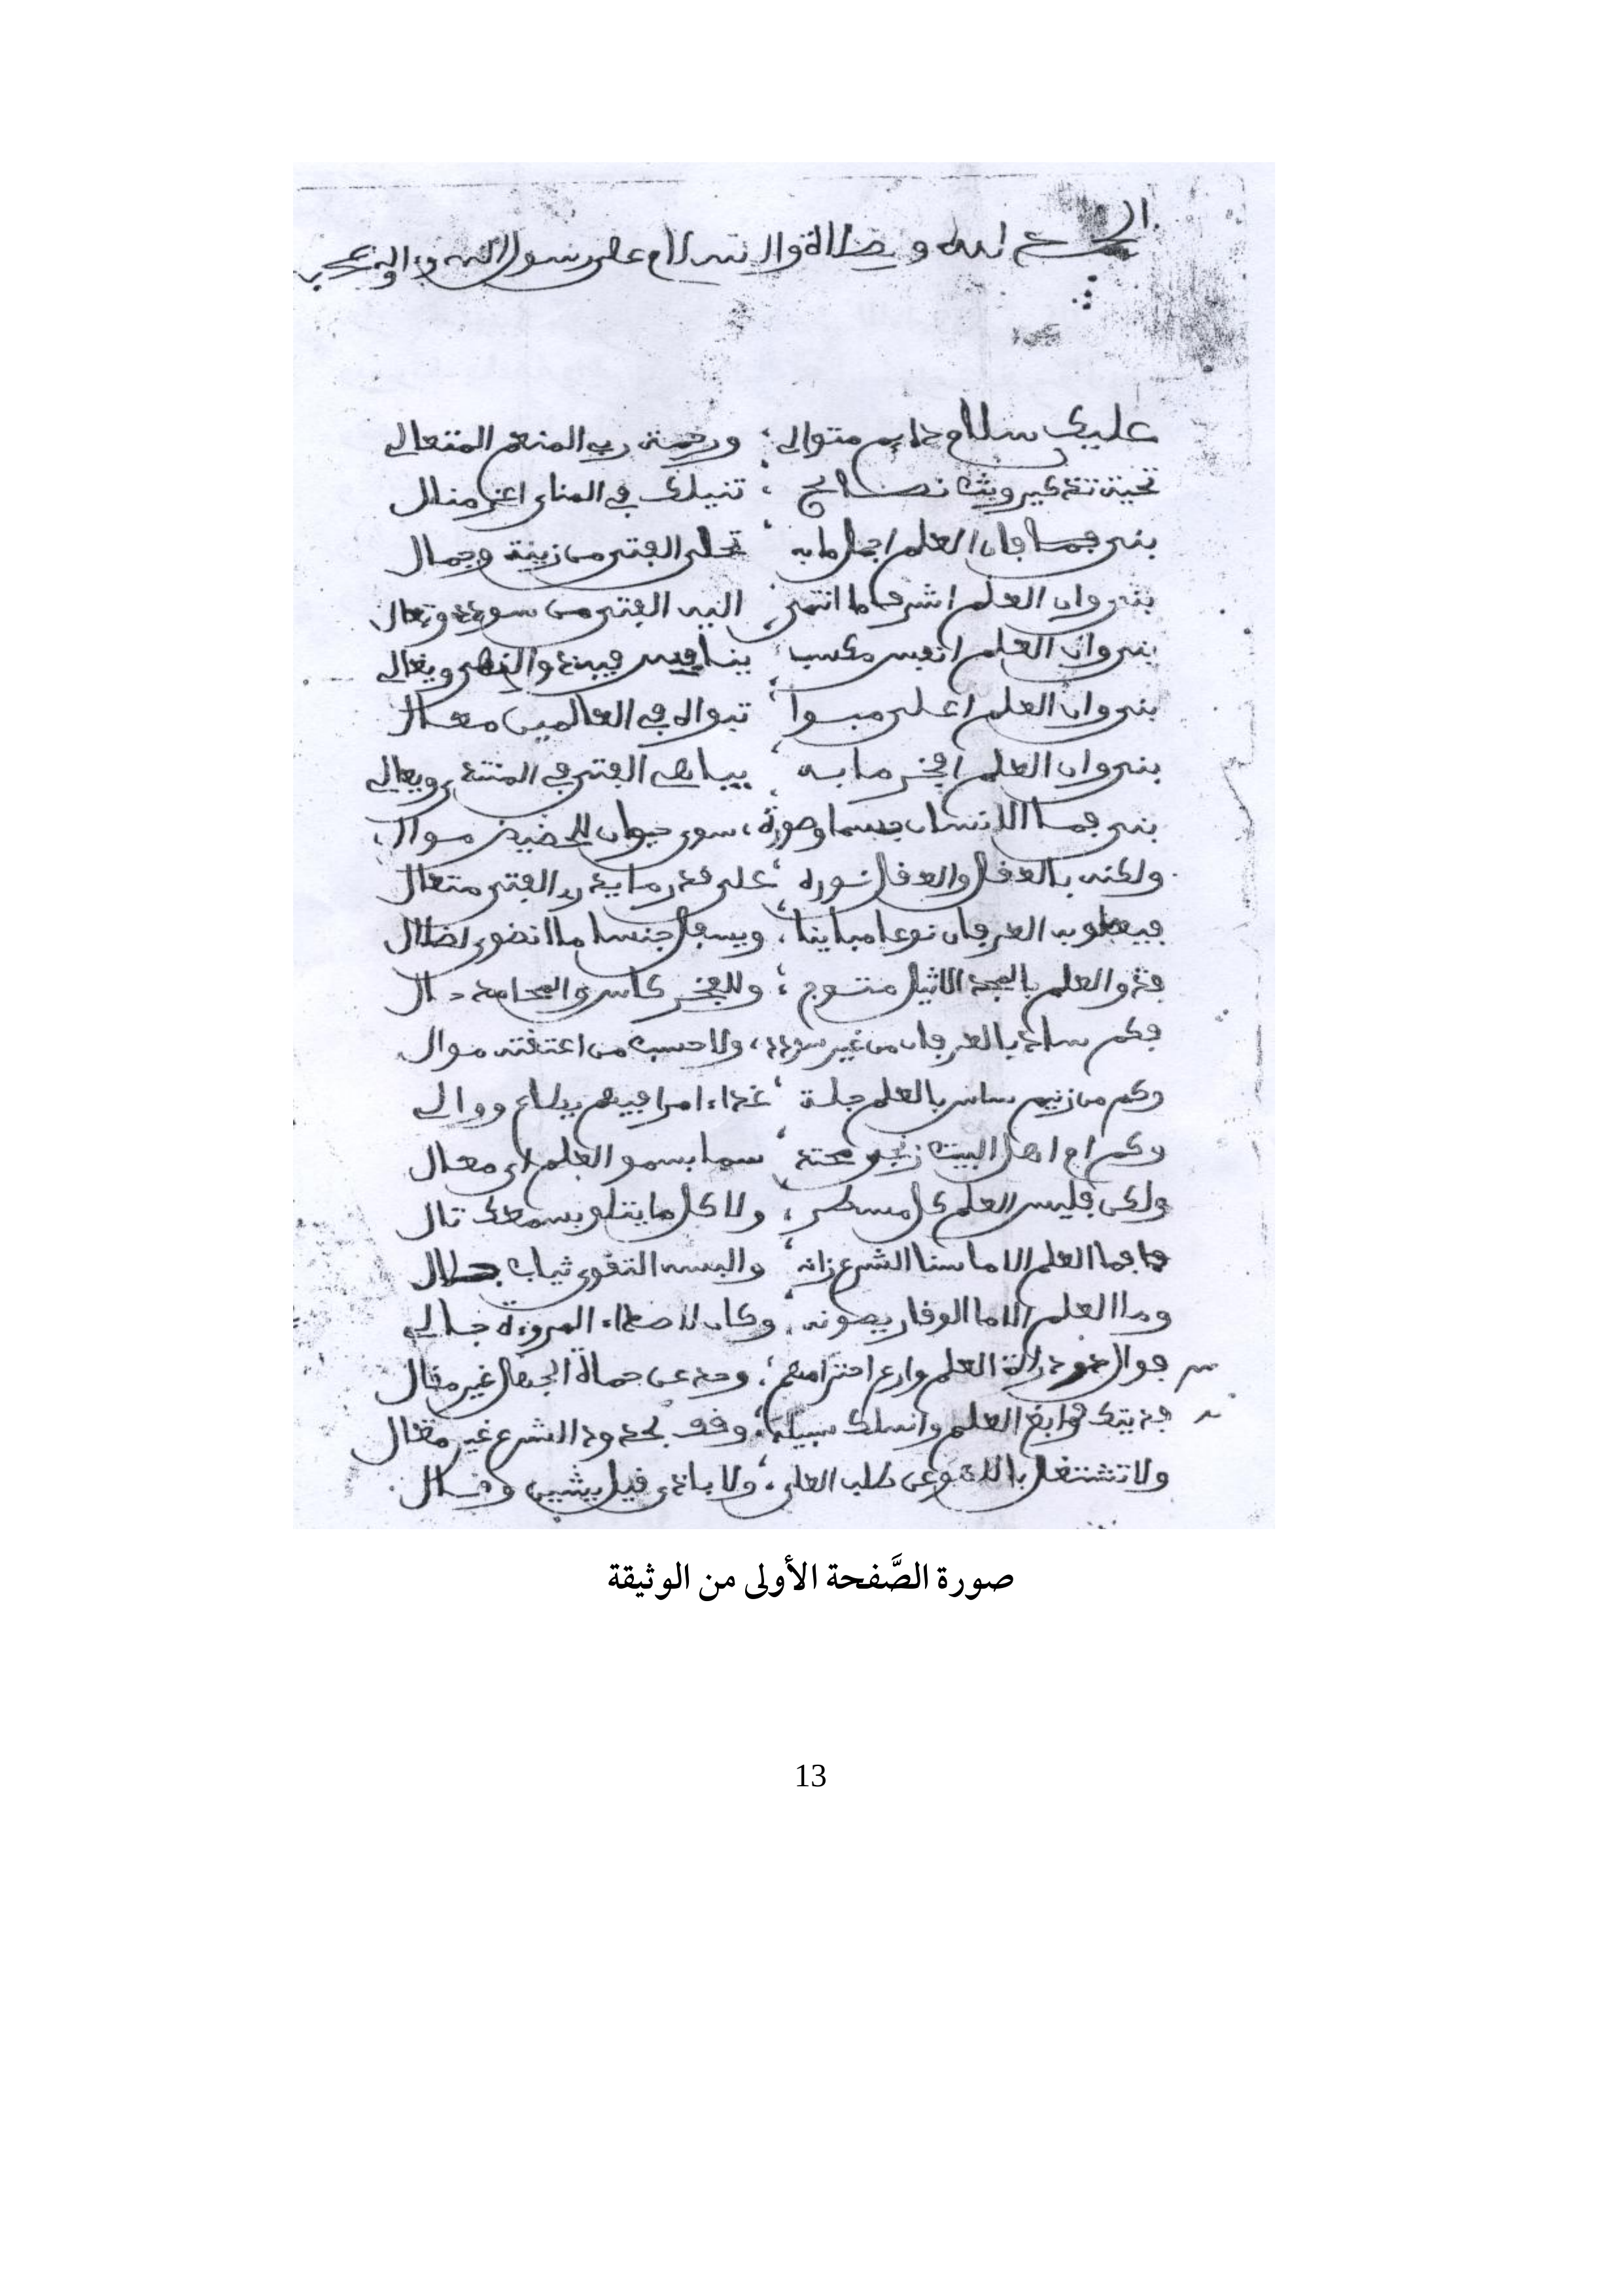 الحمد لله والصلاة والسلام على رسول الله وءاله وصحبه
عليك سلام دايم متوالي ؛ ورحمة رب المنعم المتعالي
تحية تذكير وبث نصائح ؛ تنيلك في المنأى اعز منال
بني فما فان العلم اجمل ما به ؛ تحلى الفتى من زينة وجمال
بني وان العلم اشرف ما انتمى ؛ اليه الفتى من سودد وتعال
بني وان العلم انفس مكسب ؛ ينافس فيه ذو النهى ويغالي
بني وان العلم اعلى مبوا ؛ تبوأه في العالمين معال
بني وان العلم افخر ما به ؛ يباهى الفتى في المنتدى ويعالي
بني فما الانسان جسما وصورة ؛ سوى حيوان للحضيض موال
ولكنه بالعقل والعقل نوره ؛ على قدر ما يدريه الفتى متعال
فيعلو به العرفان نوعا مباينا ؛ ويسفل جنسا ما انضوى لضلال
فذو العلم بالمجد الاثيل متوج ؛ وللفخر كاس والمحامد حال
فكم ساد بالعرفان من غير سودد ؛ ولا حسب من اعتقته موال
وكم من زنيم ساس بالعلم جلة ؛ غداء امرا فيهم يطاع ووالي
وكم ام اهل البيت زنجي محتد ؛ سما بسمو العلم اي معال
ولكن فليس العلم كل مسطر ؛ ولا كل ما يتلو بسمعك تال
فما العلم الا ما سنا الشرع زانه ؛ والبسه التقوى ثياب جلال
وما العلم الا ما الوقار يصونه ؛ وكان لاصداء المروءة جالي
فوال دراة العلم وارع احترامهم ؛ وحد عن حماة الجهل غير مقال
فديتك فابغ العلم واسلك سبيله ؛ وقف بحدود الشرع غير مغال
ولا تشتغل باللهو عن طلب العلى ؛ ولا باذى قيل يشين وقال
صورة الصَّفحة الأولى من الوثيقة
13